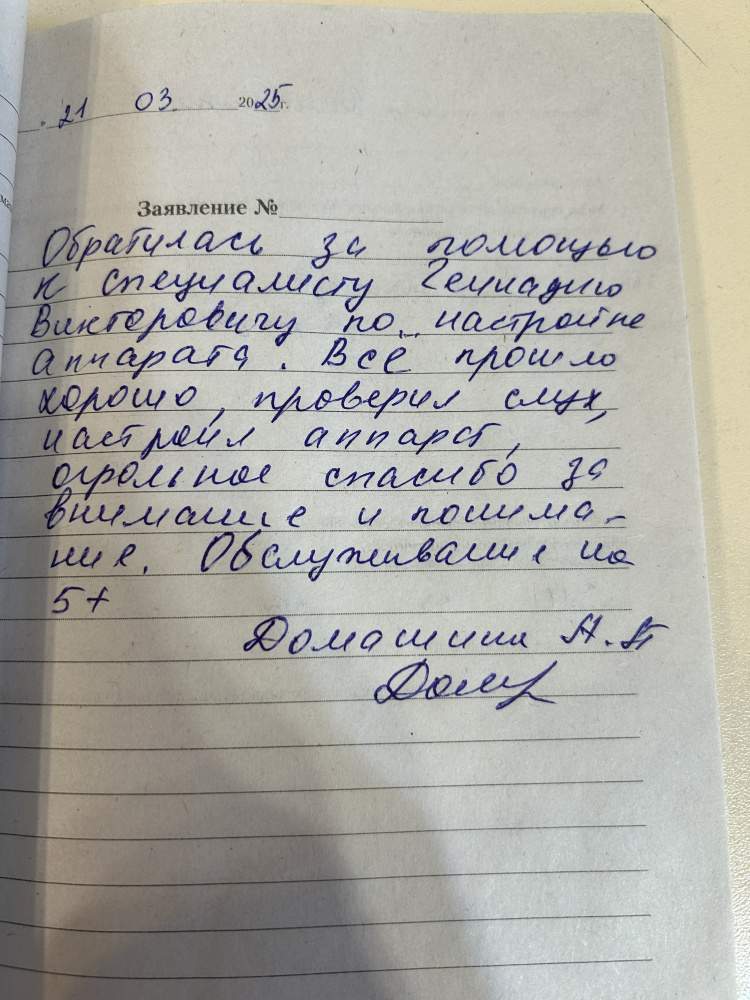 21 03 2025г.
Заявление №
Обратилась за помощью
к специалисту Геннадию
Викторовичу по настройке
аппарата. Всё прошло
хорошо, проверил слух,
настроил аппарат,
огромное спасибо за
внимание и понима-
ние. Обслуживание на
5+
Домашина А.П